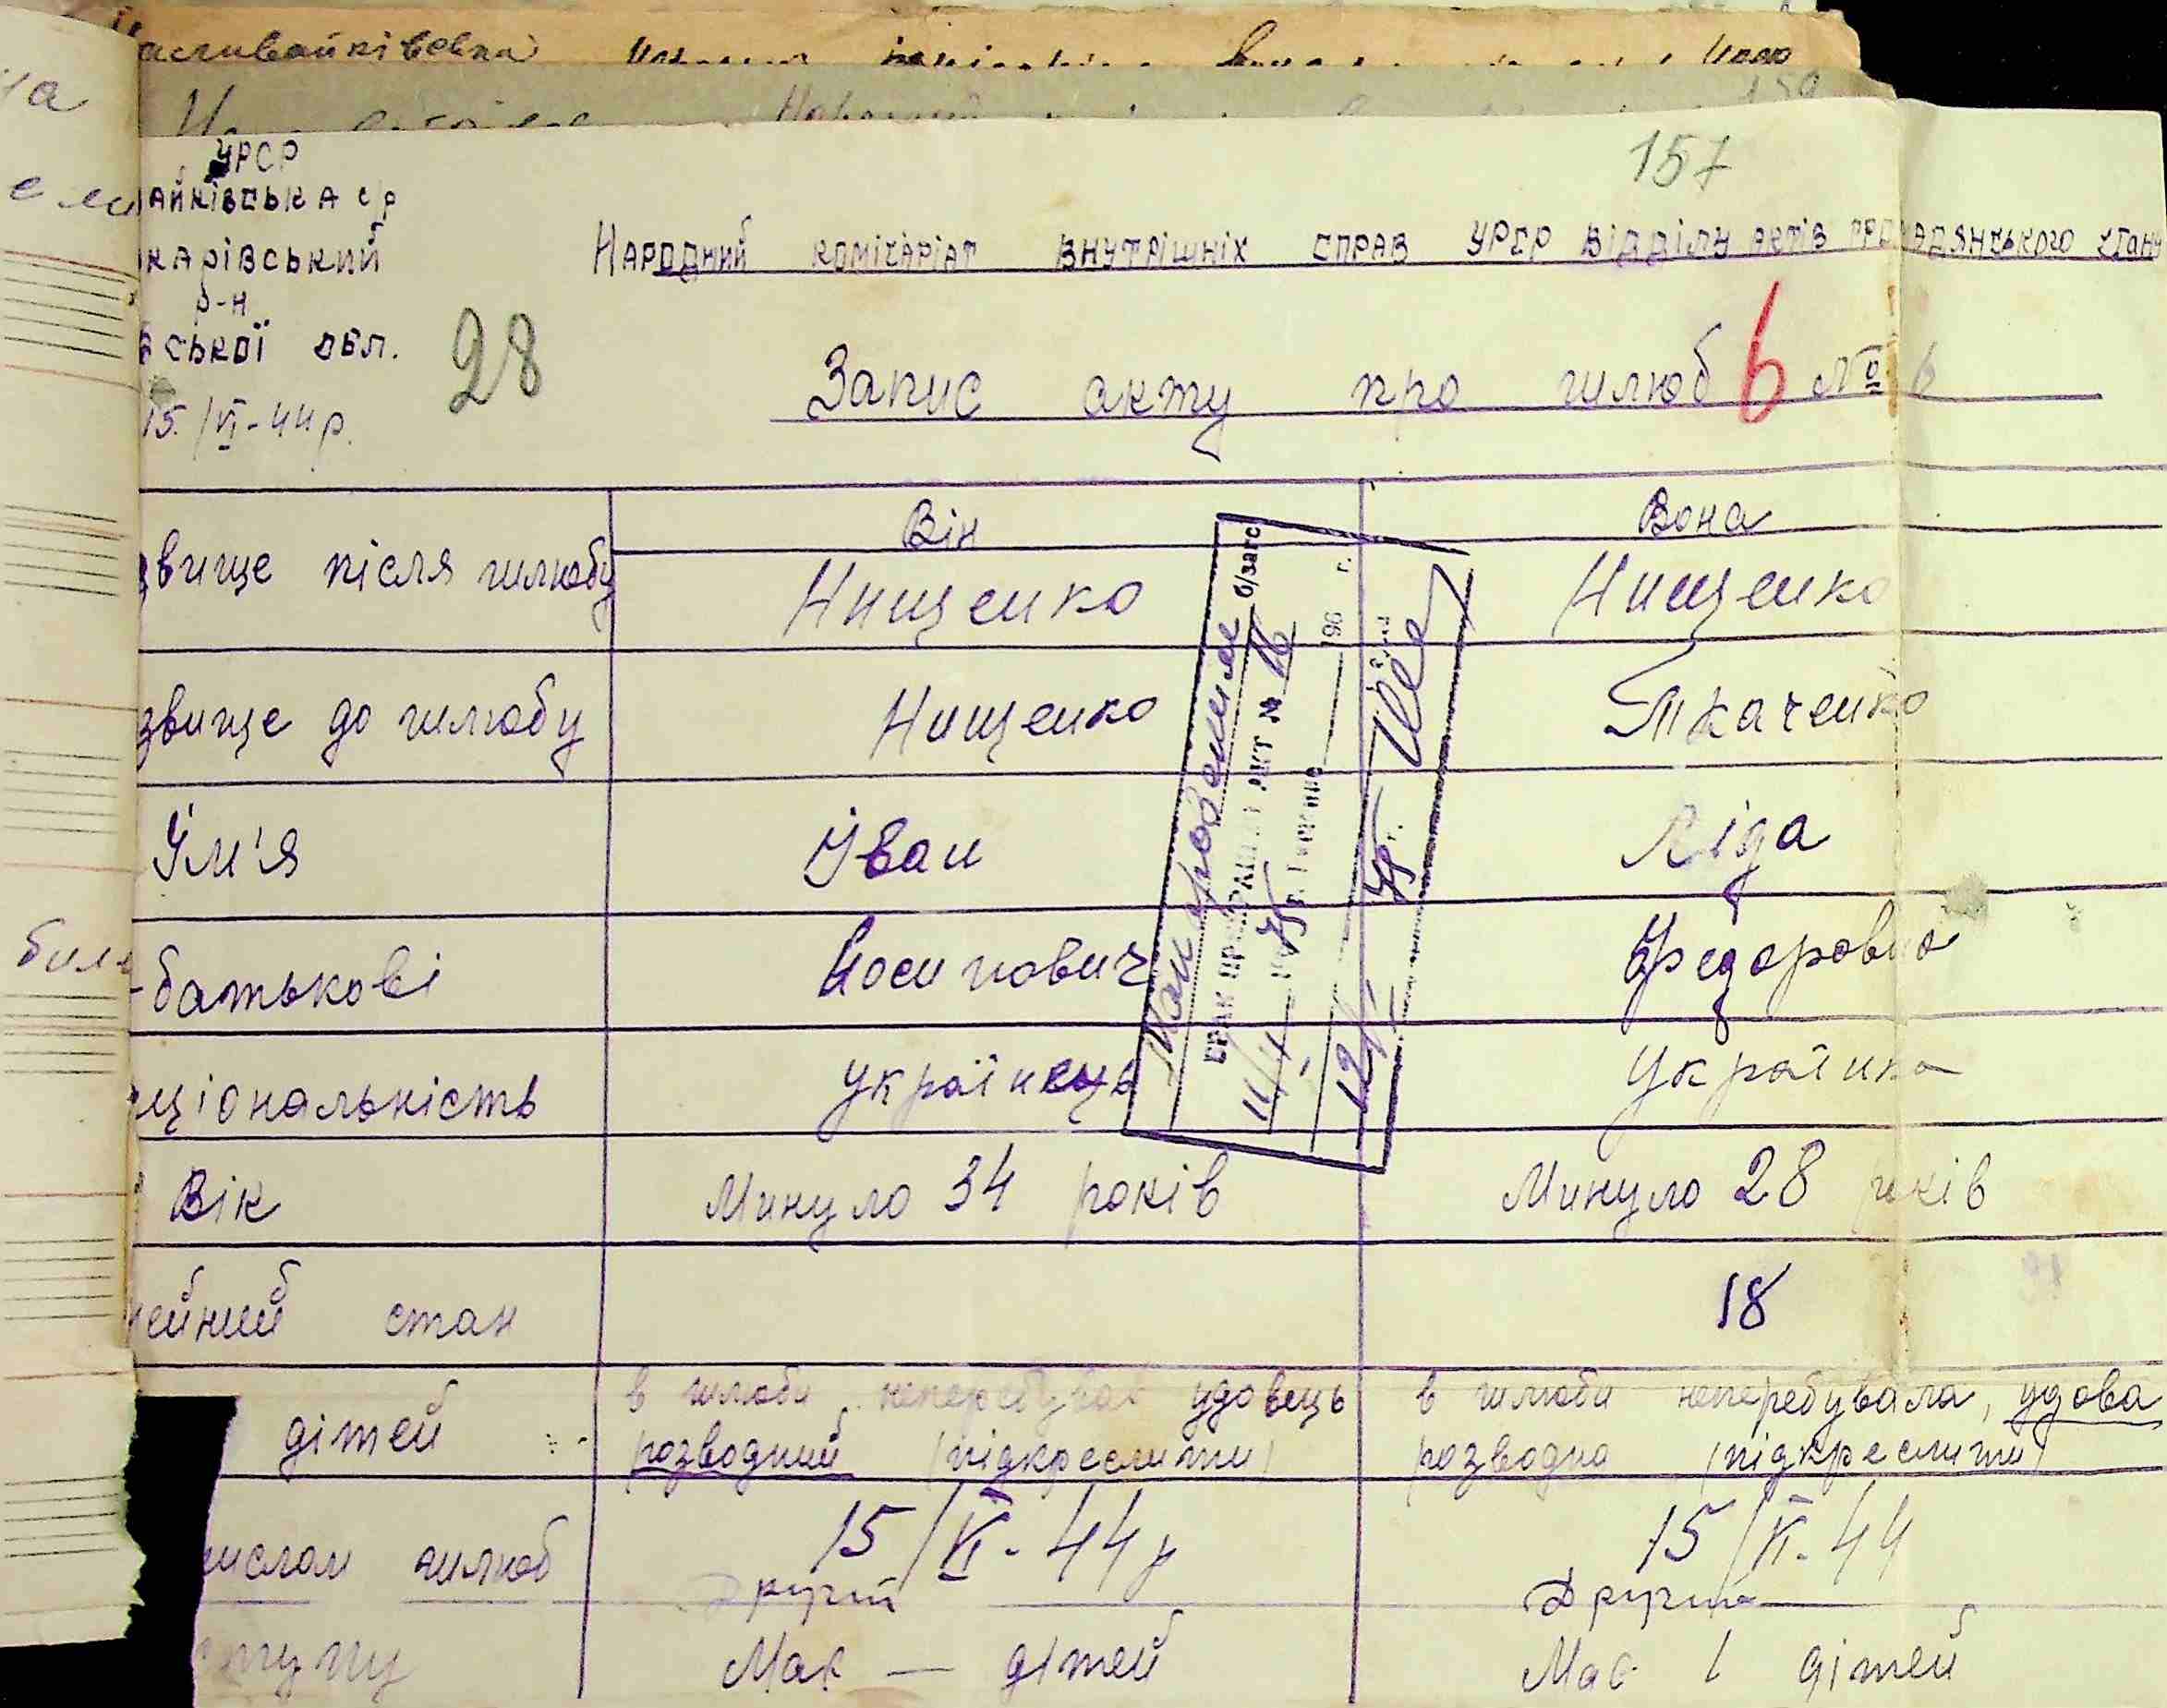 157
УРСР
АЙКІВСЬКА С/Р
КАРІВСЬКИЙ
Р-Н
СЬКОЇ ОБЛ.
15/VI-44 р.
28
НАРОДНИЙ КОМІСАРІАТ ВНУТРІШНІХ СПРАВ УРСР ВІДДІЛУ АКТІВ ГРОМАДЯНСЬКОГО СТАНУ
Запис акту про шлюб 6 № 6
Він Вона
звище після шлюбу Нищенко Нищенко
звище до шлюбу Нищенко Ткаченко
Їм'я Іван Ліда
-батькові Йосипович Федоровна
ціональність українець Українка
Вік Минуло 34 років Минуло 28 років
ейний стан 18
дітей в шлюби неперебував удовець в шлюби неперебувала, удова
розводний (підкреслити) розводна (підкреслити)
числом шлюб 15/VI-44 р 15/VI-44
Другий Другий
Має — дітей Має 1 дітей
б/загс
АКТ № 16
196 г.